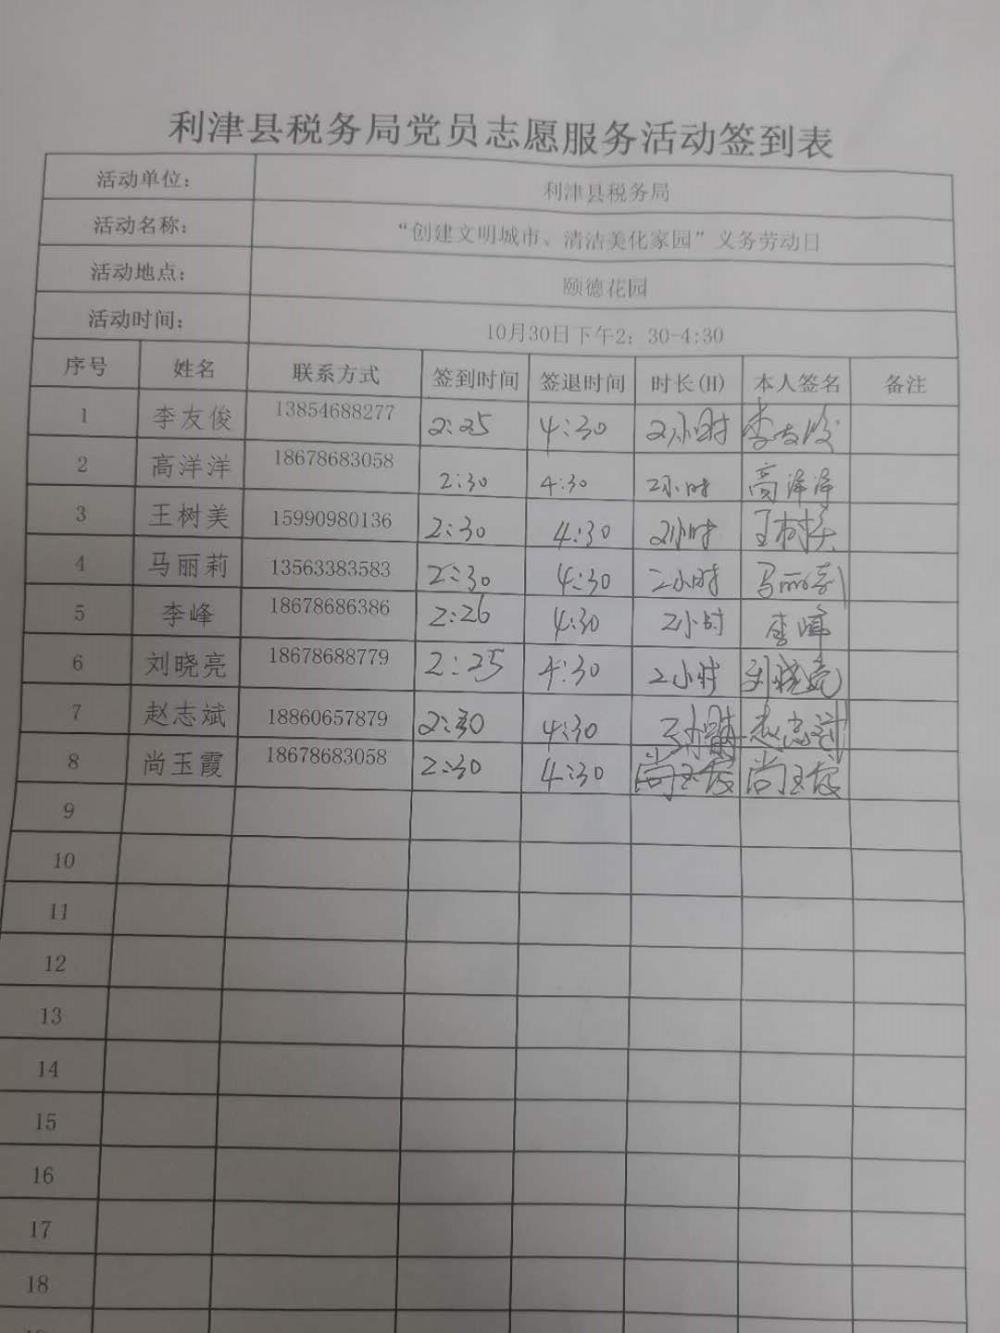 利津县税务局党员志愿服务活动签到表
活动单位: 利津县税务局
活动名称: “创建文明城市、清洁美化家园”义务劳动日
活动地点: 颐德花园
活动时间: 10月30日下午2: 30-4:30
序号 姓名 联系方式 签到时间 签退时间 时长(H) 本人签名 备注
1 李友俊 13854688277 2:25 4:30 2小时 李友俊
2 高洋洋 18678683058 2:30 4:30 2小时 高洋洋
3 王树美 15990980136 2:30 4:30 2小时 王树美
4 马丽莉 13563383583 2:30 4:30 二小时 马丽莉
5 李峰 18678686386 2:26 4:30 2小时 李峰
6 刘晓亮 18678688779 2:25 4:30 2小时 刘晓亮
7 赵志斌 18860657879 2:30 4:30 赵志斌
8 尚玉霞 18678683058 2:30 4:30 尚玉霞 尚玉霞
9
10
11
12
13
14
15
16
17
18